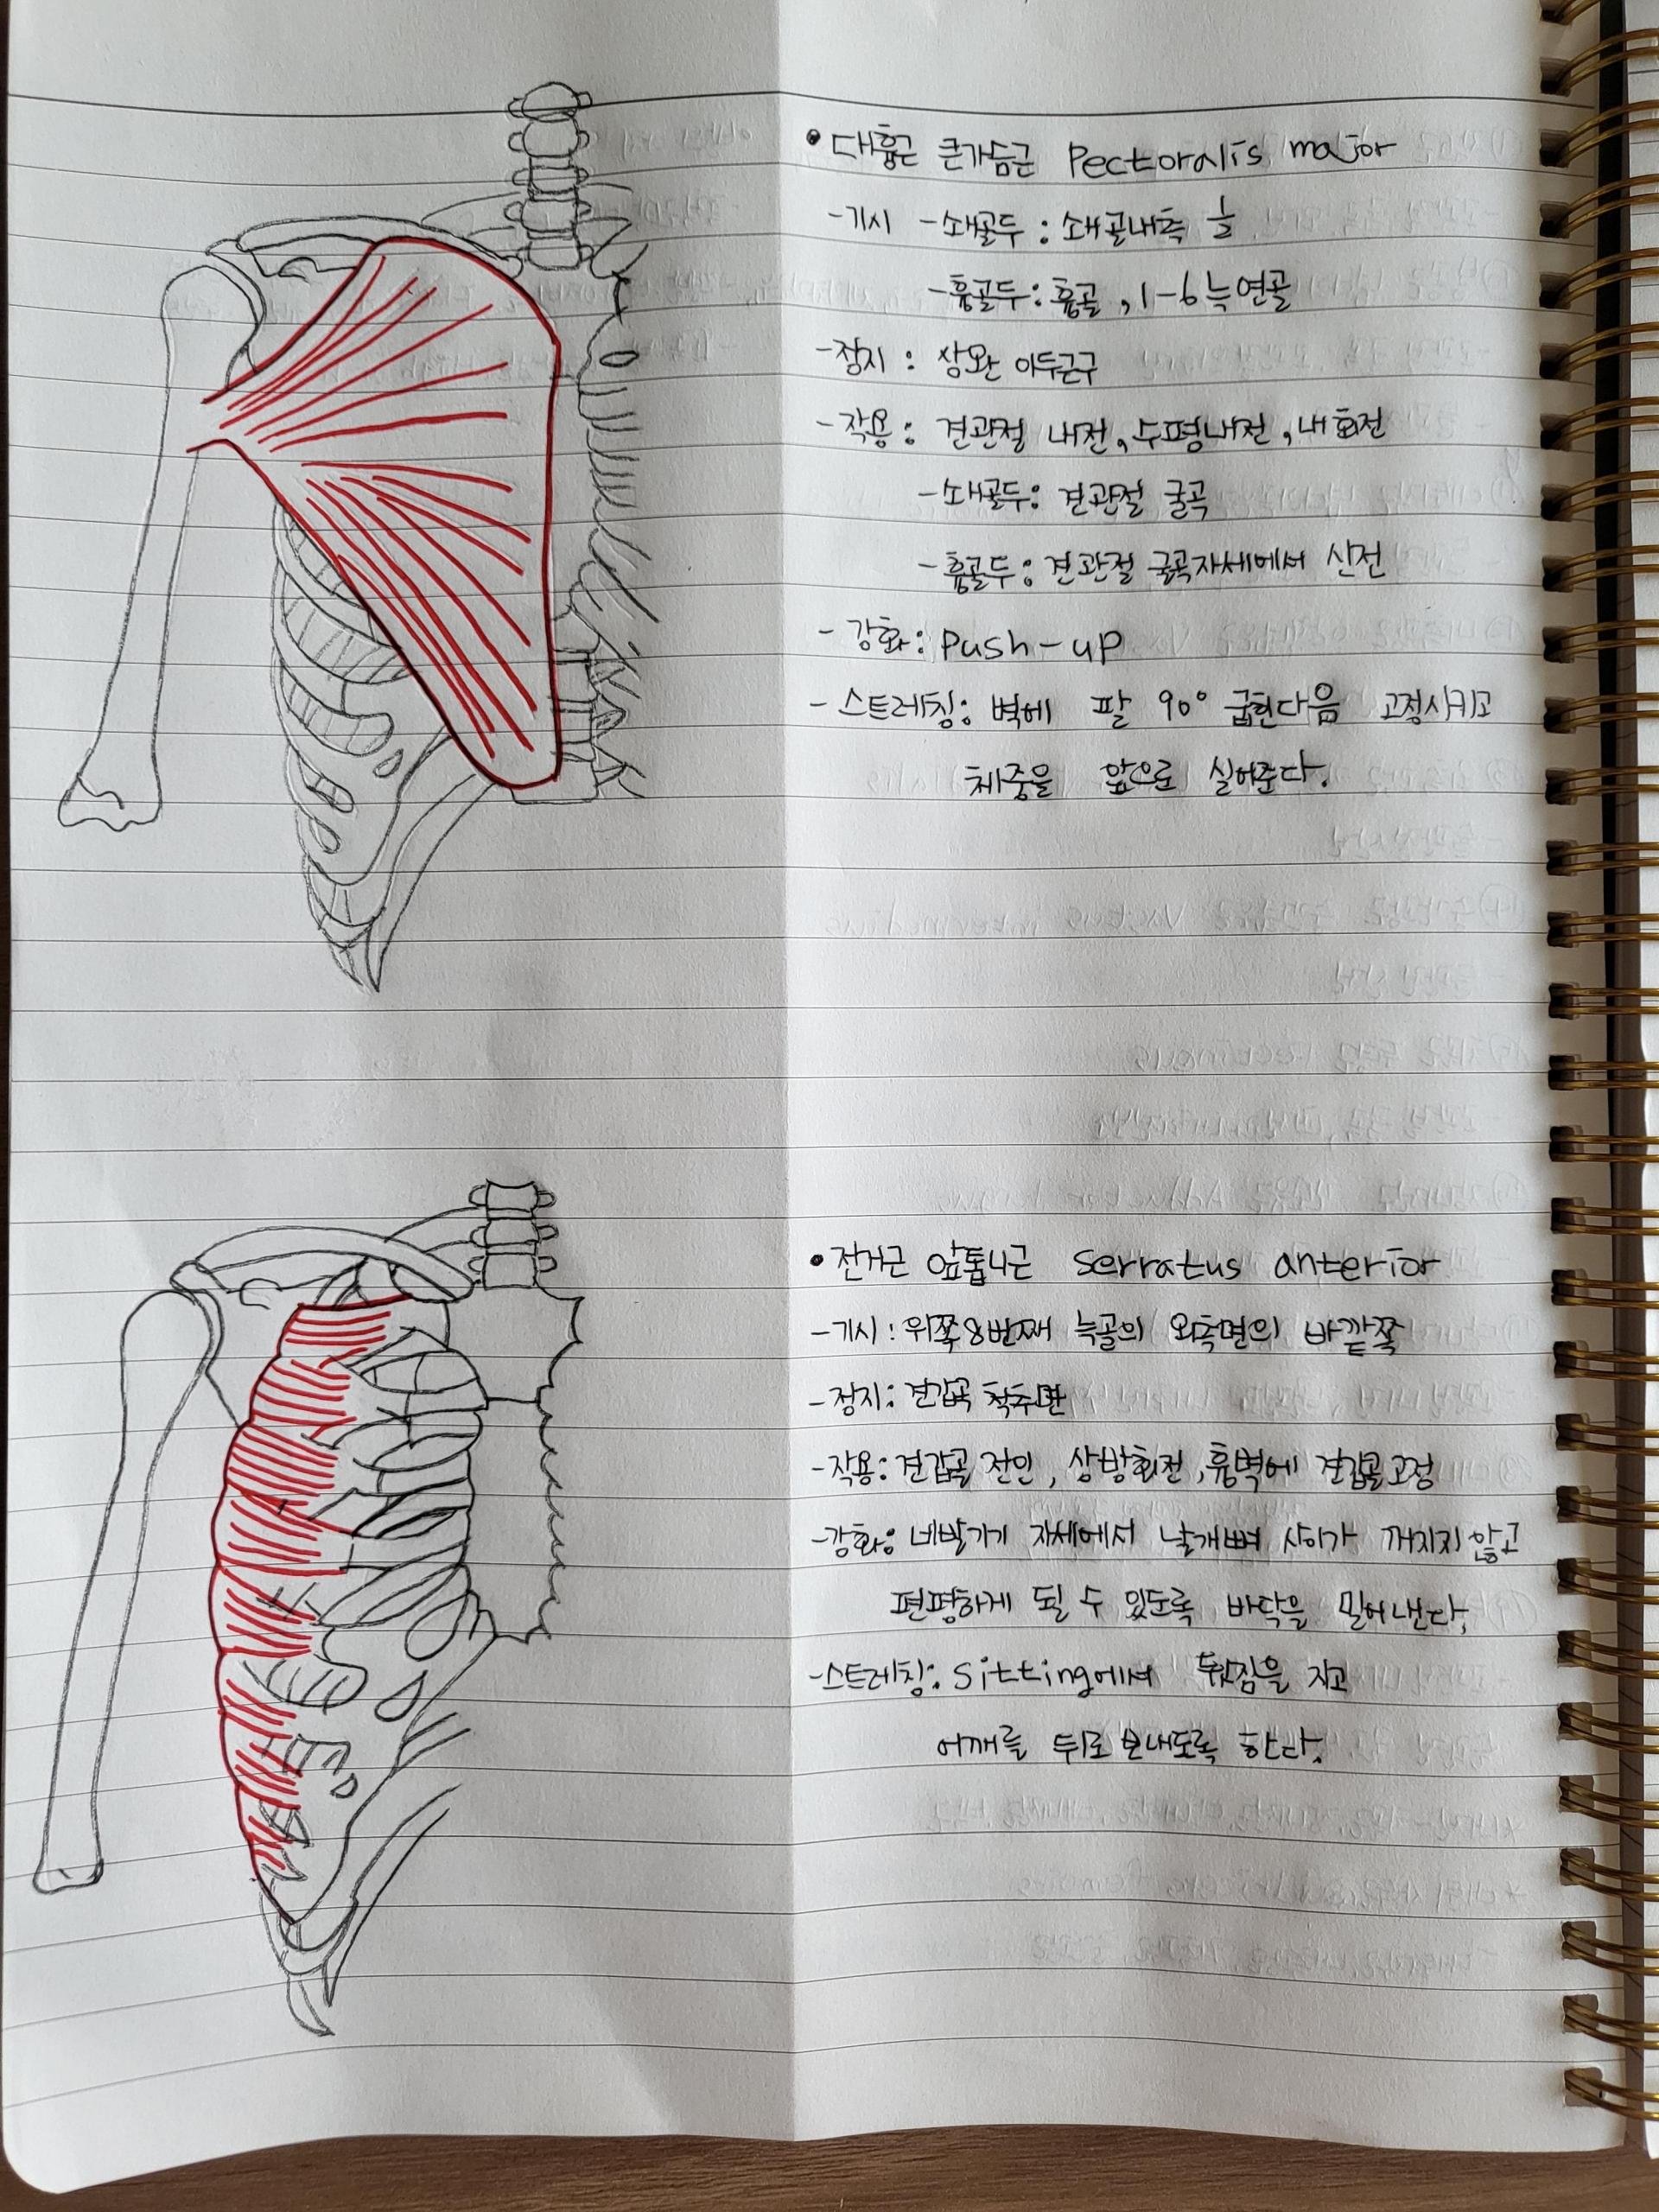 • 대흉근 큰가슴근 Pectoralis major
-기시 -쇄골두 : 쇄골내측 ½
-흉골두 : 흉골, 1-6늑연골
-정지 : 상완 이두근구
-작용 : 견관절 내전, 수평내전, 내회전
-쇄골두 : 견관절 굴곡
-흉골두 : 견관절 굴곡자세에서 신전
-강화 : push-up
-스트레칭 : 벽에 팔 90° 굽힌다음 고정시키고
체중을 앞으로 실어준다.
• 전거근 앞톱니근 serratus anterior
-기시 : 위쪽 8번째 늑골의 외측면의 바깥쪽
-정지 : 견갑골 척추면
-작용 : 견갑골 전인, 상방회전, 흉벽에 견갑골고정
-강화 : 네발기기 자세에서 날개뼈 사이가 꺼지지 않고
편평하게 될 수 있도록 바닥을 밀어낸다.
-스트레칭 : sitting에서 뒷짐을 지고
어깨를 뒤로 보내도록 한다.